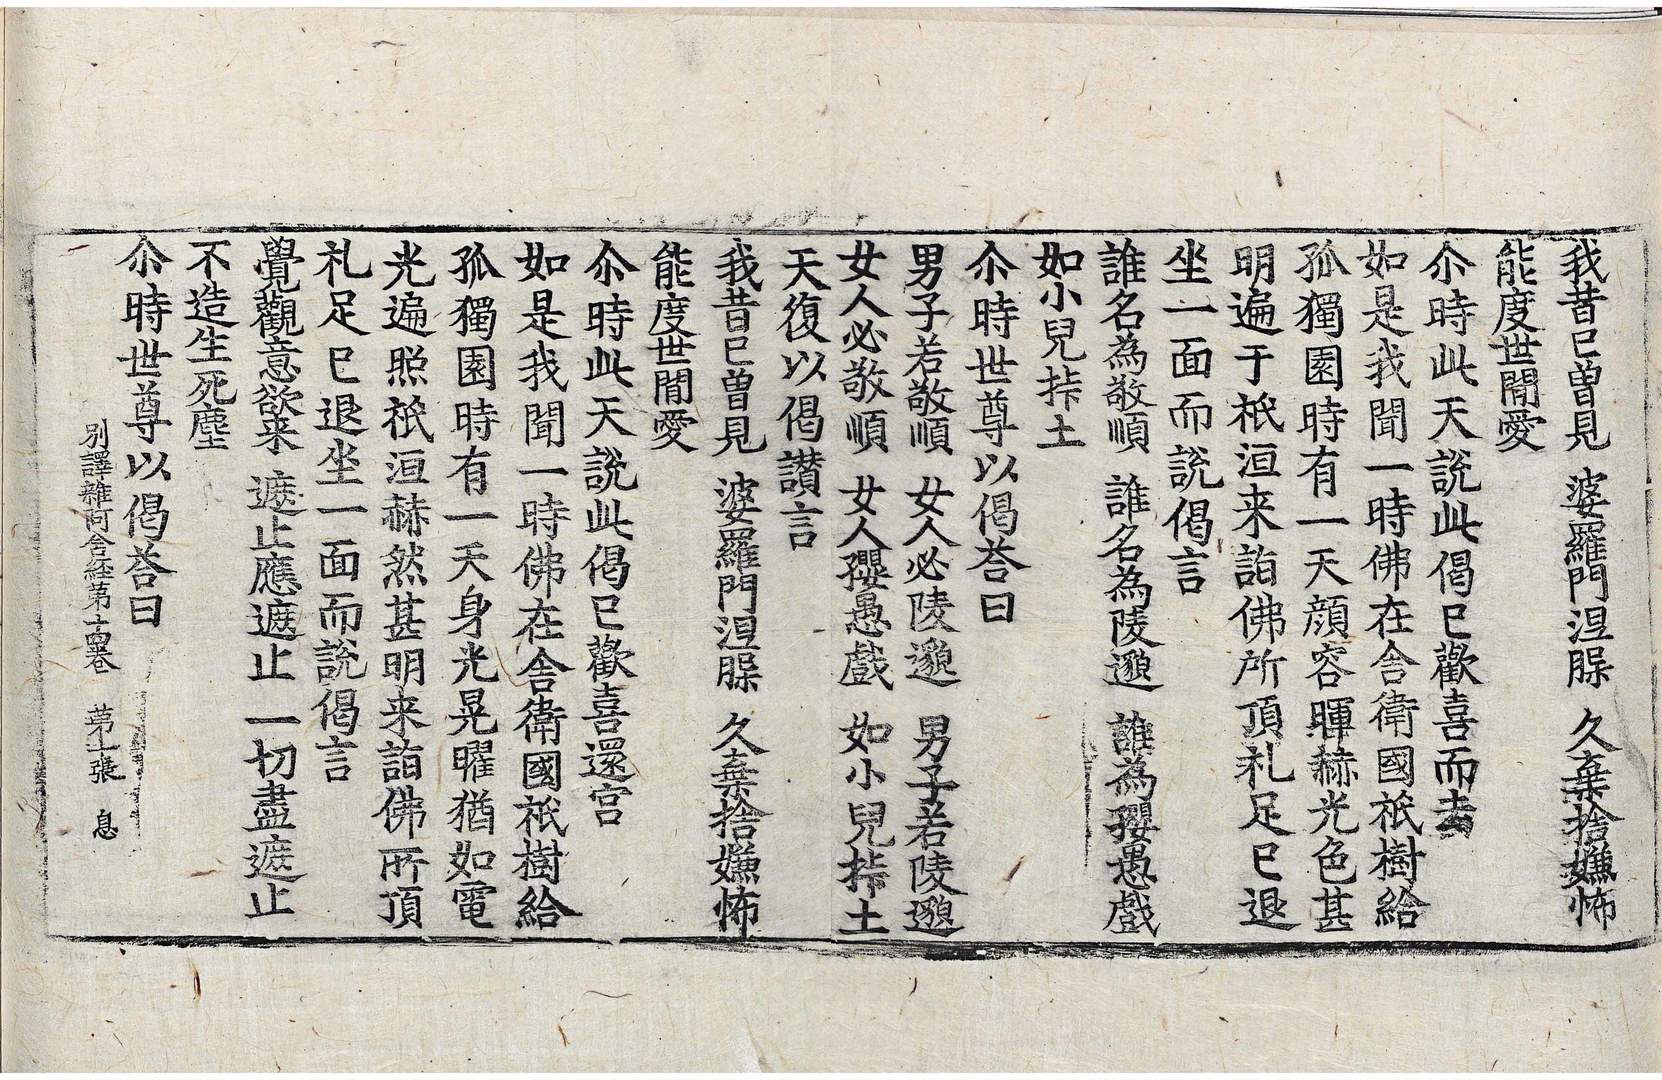 我昔已曾見 婆羅門涅槃 久棄捨嫌怖
能度世閒愛
尒時此天說此偈已歡喜而去
如是我聞一時佛在舎衛國祇樹給
孤獨園時有一天顔容暉赫光色甚
明遍于祇洹来詣佛所頂礼足已退
坐一面而說偈言
誰名為敬順 誰名為陵邈 誰為㜅愚戲
如小兒挊土
尒時世尊以偈荅曰
男子若敬順 女人必陵邈 男子若陵邈
女人必敬順 女人㜅愚戲 如小兒挊土
天復以偈讃言
我昔已曾見 婆羅門涅槃 久棄捨嫌怖
能度世閒愛
尒時此天說此偈已歡喜還宫
如是我聞一時佛在舎衛國祇樹給
孤獨園時有一天身光晃曜猶如電
光遍照祇洹赫然甚明来詣佛所頂
礼足已退坐一面而說偈言
覺觀意欲来 遮止應遮止 一切盡遮止
不造生死塵
尒時世尊以偈荅曰
別譯雜阿含経苐十四卷 苐十張 息